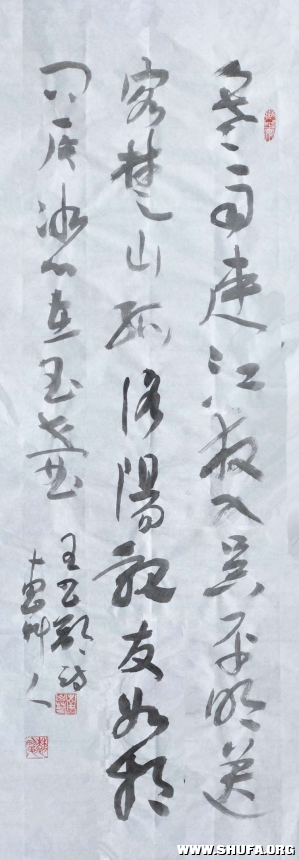 寒雨連江夜入吴平明送
客楚山孤洛陽親友如相
问一片冰心在玉壺
王昌齡詩
WWW.SHUFA.ORG